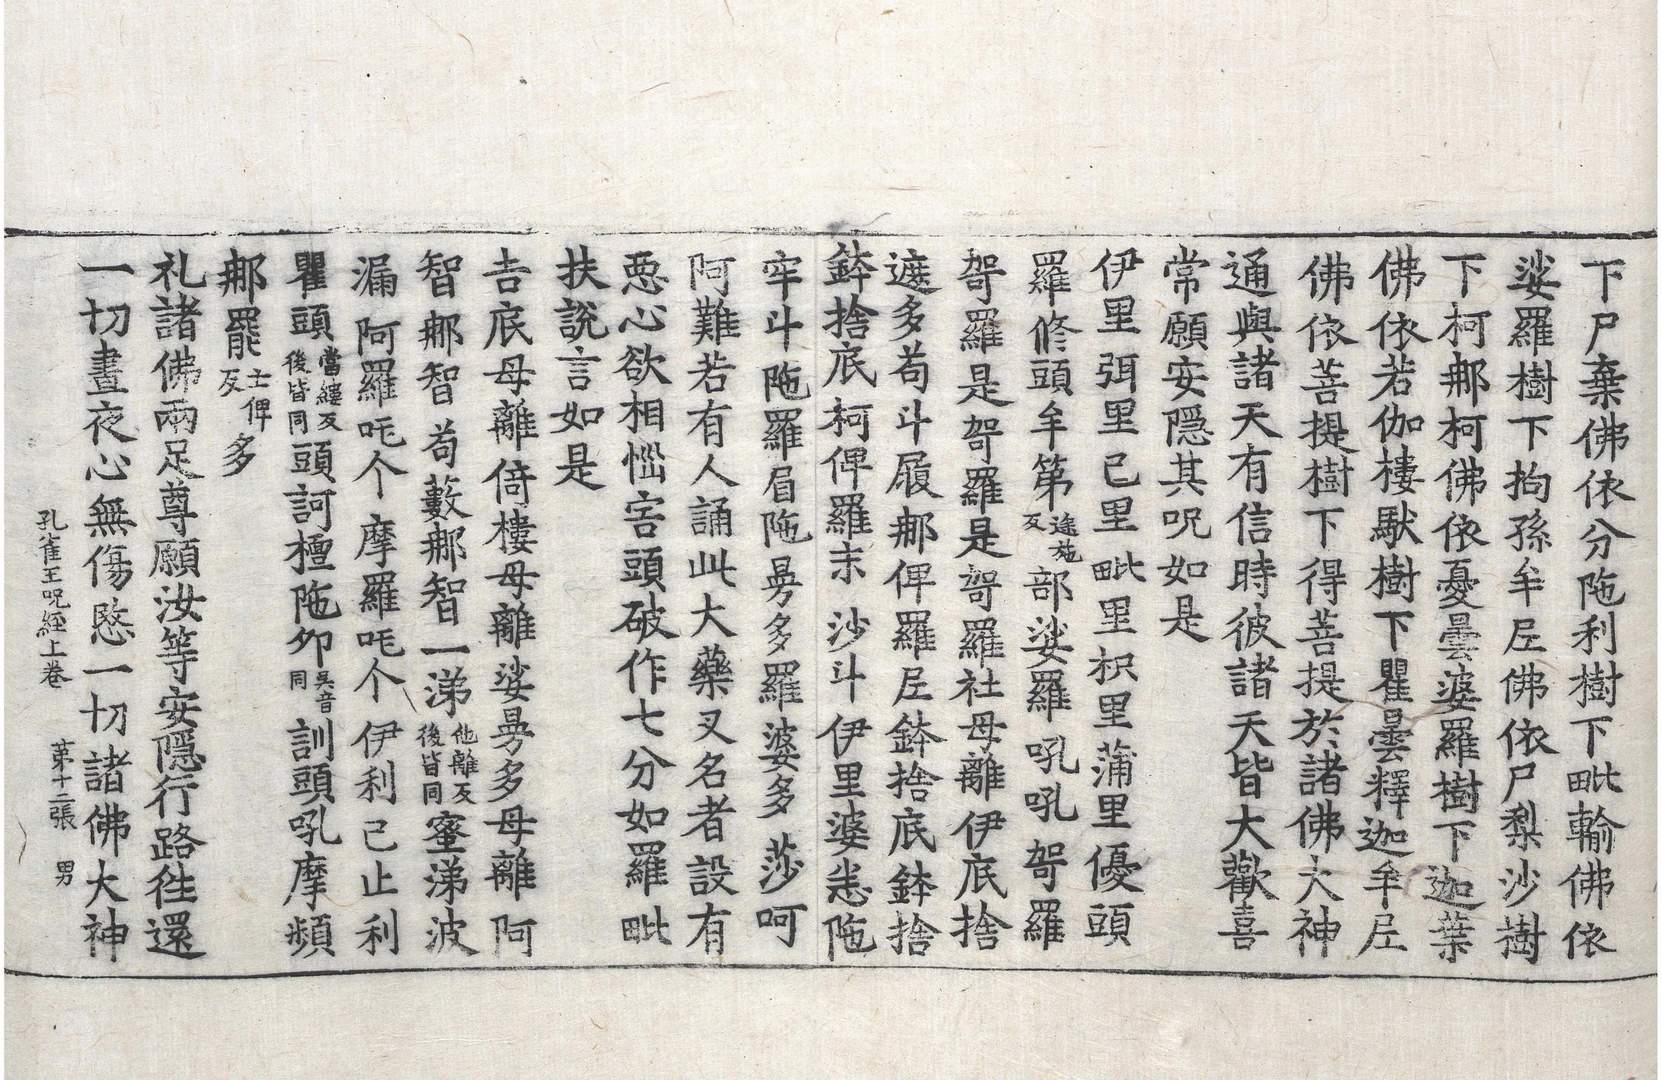 下尸棄佛依分陁利樹下毗輸佛依
娑羅樹下拘孫牟𡰱佛依尸梨沙樹
下柯那柯佛依憂曇婆羅樹下迦葉
佛依若伽樓馱樹下瞿曇釋迦牟𡰱
佛依菩提樹下得菩提於諸佛大神
通與諸天有信時彼諸天皆大歡喜
常願安隱其呪如是
伊里弭里已里毗里枳里蒲里優頭
羅修頭牟第途施反部娑羅吼吼哿羅
哿羅是哿羅是哿羅社母離伊底捨
遮多苟斗履那俾羅𡰱鉢捨底鉢捨
鉢捨底柯俾羅末沙斗伊里婆恙陁
牢斗陁羅眉陁㝵多羅婆多莎呵
阿難若有人誦此大藥叉名者設有
惡心欲相惱害頭破作七分如羅毗
扶說言如是
吉底母離倚樓母離娑㝵多母離阿
智那智苟藪那智一渧他離反後皆同蜜渧波
漏阿羅吒个摩羅吒个伊利已止利
瞿頭當縷反後皆同頭訶檀陁夘吴音同訓頭吼摩頻
那罷士俾反多
礼諸佛兩足尊願汝等安隱行路徃還
一切晝夜心無傷愍一切諸佛大神
孔雀王呪經上卷 第十二張 男